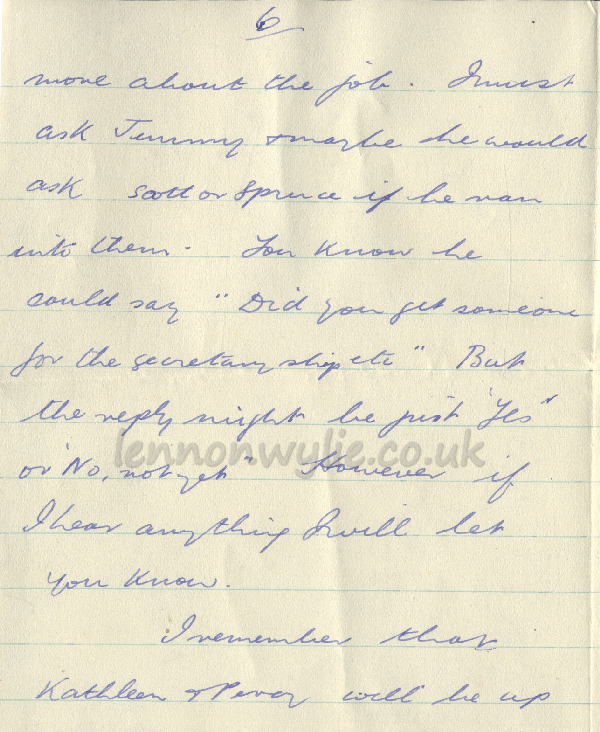 6
more about the job. I must
ask Jimmy & maybe he would
ask Scott or Spruce if he ran
into them. You know he
could say "Did you get someone
for the secretary ship etc" But
the reply might be just "Yes"
or "No, not yet" However if
lennonwylie.co.uk
I hear anything I will let
you know.
I remember that
Kathleen & Percy will be up